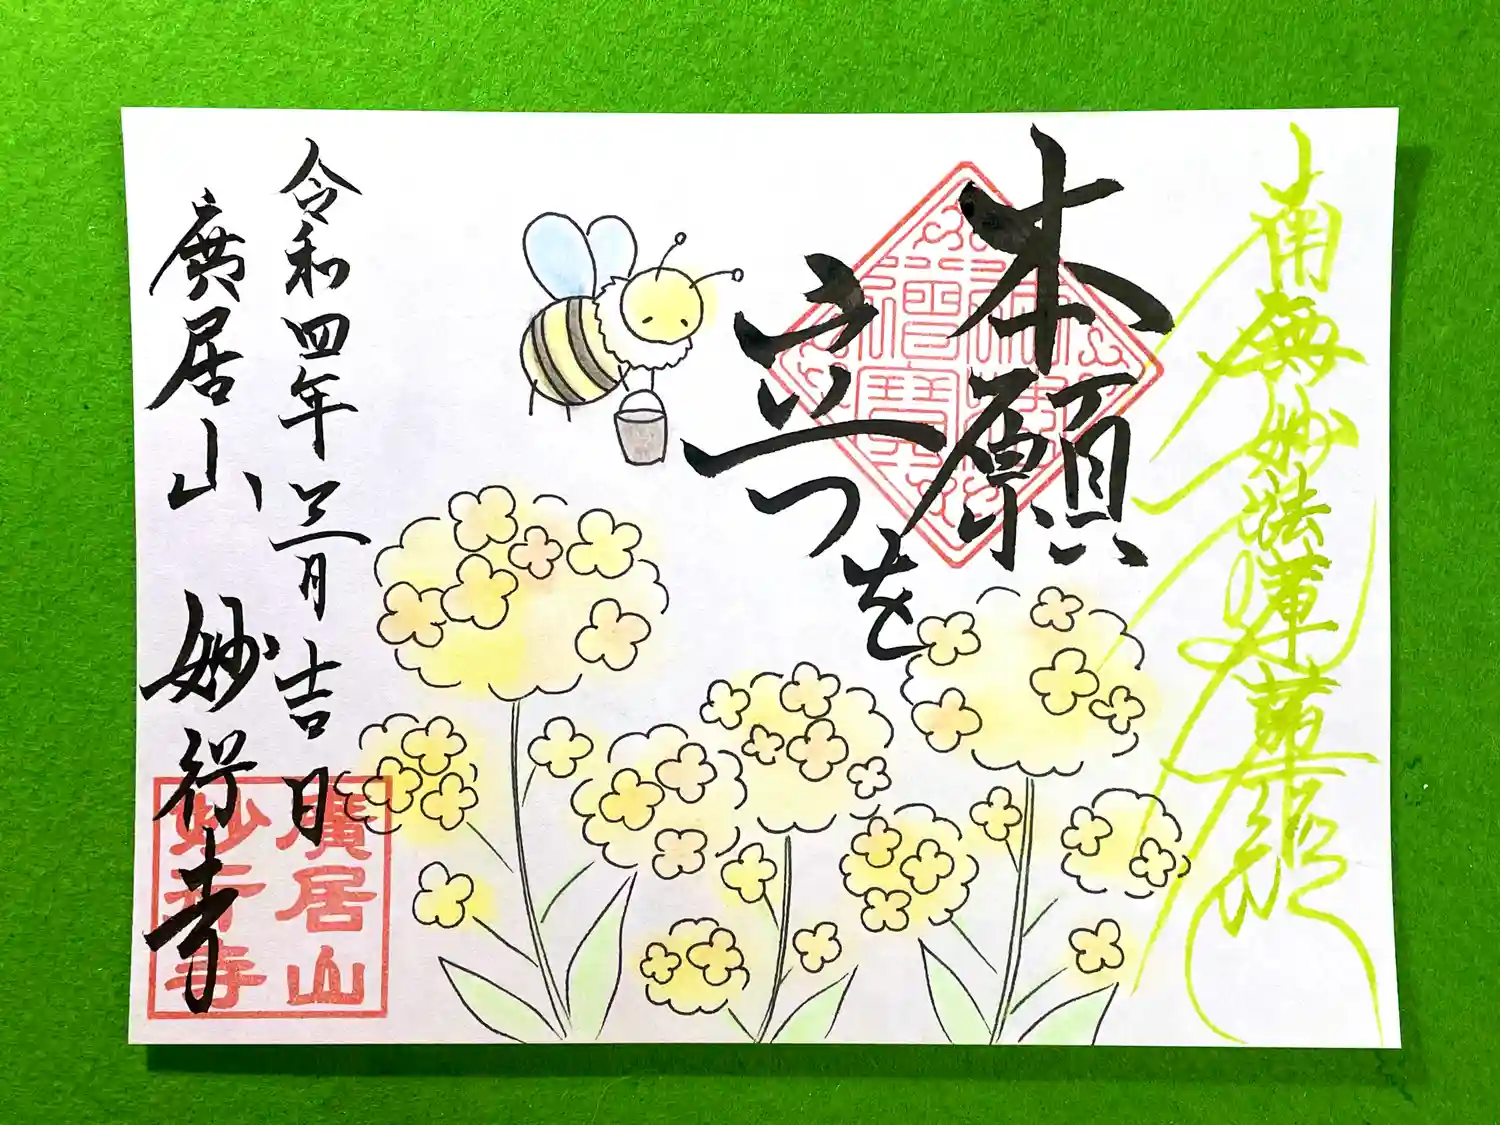 南無妙法蓮華経
本願
を
立つ
令和四年三月吉日
廣居山 妙行寺
廣居山
妙行寺